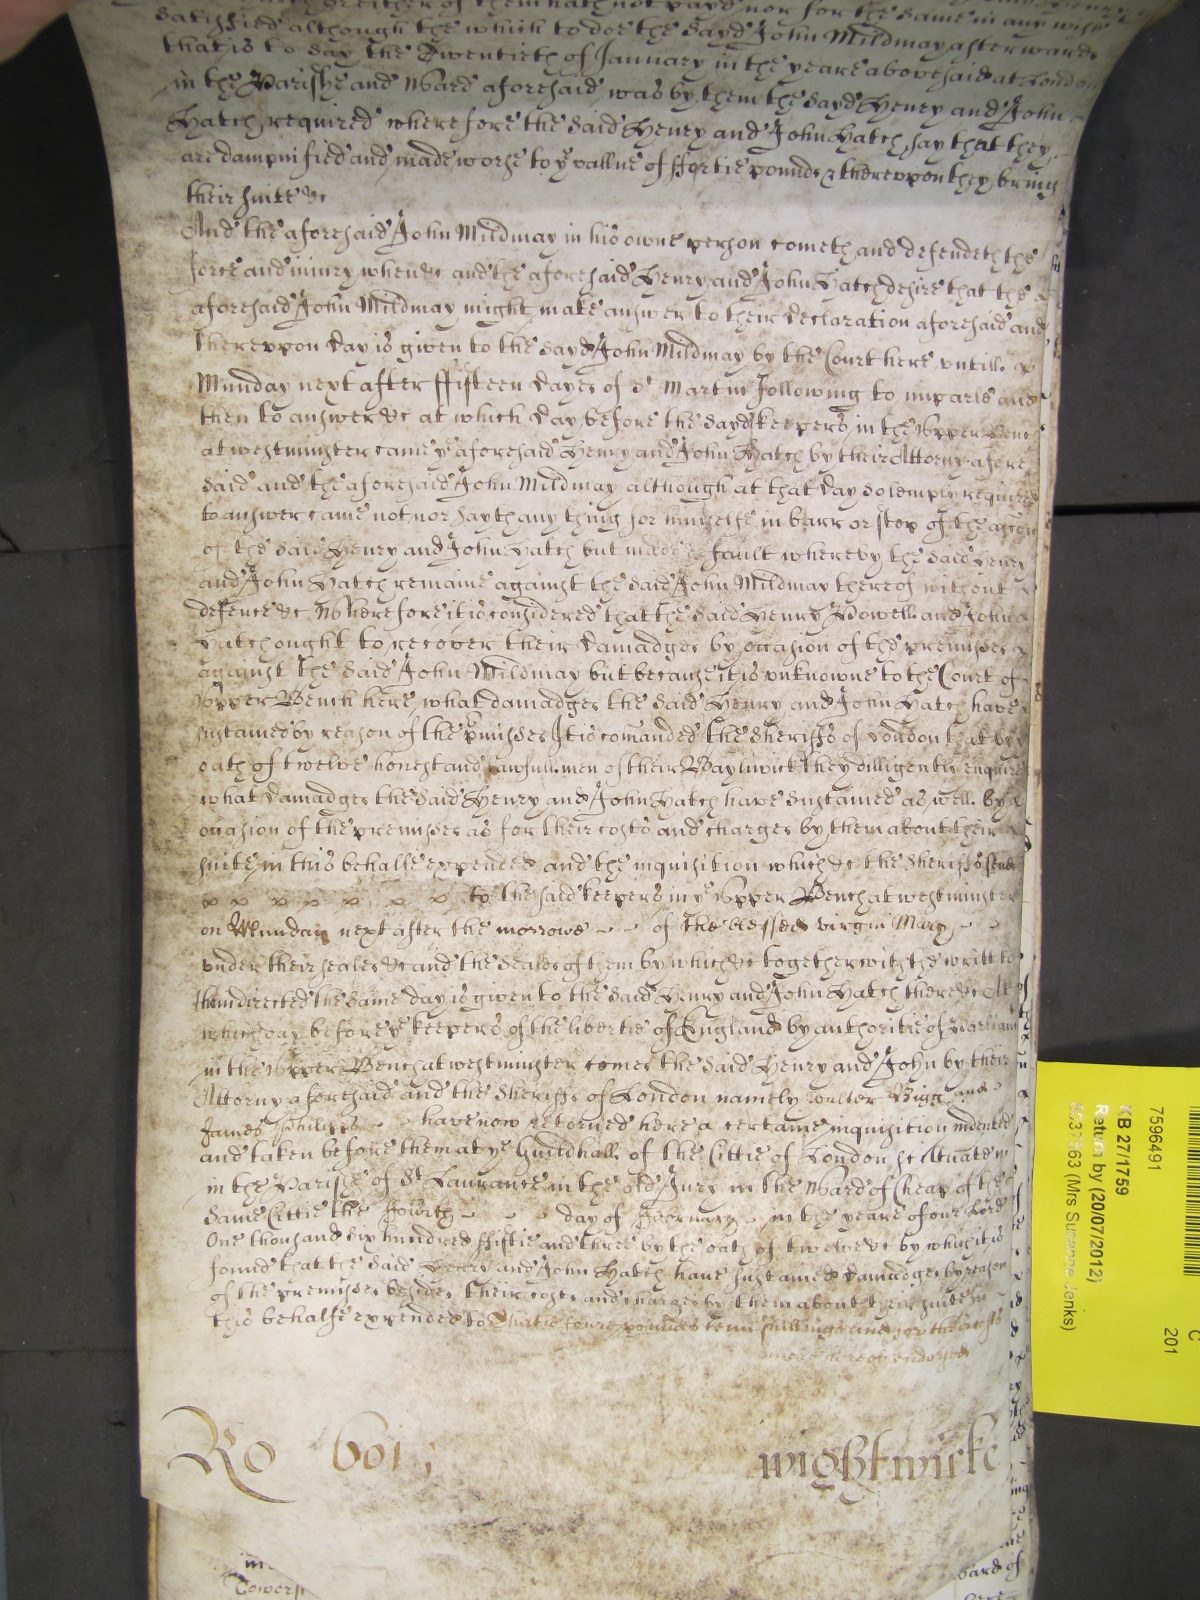 or either of them hath not payd nor for the same in any wise
satisfied although the which to doe the sayd John Mildmay afterwards
that is to say the Twentieth of January in the yeare abovesaid at London
in the Parishe and Ward aforesaid was by them the sayd Henry and John
Hatch required wherefore the said Henry and John Hatch say that they
are dampnified and made worse to ye vallue of ffortie pounds & thereupon they bring
their suite &c
And the aforesaid John Mildmay in his owne person cometh and defendeth the
force and iniury when &c and the aforesaid Henry and John Hatch desire that the
aforesaid John Mildmay might make answer to their declaration aforesaid and
thereupon day is given to the sayd John Mildmay by the Court here untill
Munday next after ffifteen dayes of St Martin following to imparle and
then to answer &c at which day before the sayd keepers in the Upper Benc
at westminster came ye aforesaid Henry and John Hatch by their Attorny afore
said and the aforesaid John Mildmay although at that day solemply required
to answer came not nor sayth any thing for himselfe in barr or stop of the accon
of the said Henry and John Hatch but made default whereby the said Henry
and John Hatch remaine against the said John Mildmay thereof without
defence &c Wherefore it is considered that the said Henry Powell and John
Hatch ought to recover their damadges by occasion of the premisses
against the said John Mildmay but because it is unknowne to the Court of
Upper Bench here what damadges the said Henry and John Hatch have
sustained by reason of the pmisses It is comanded the Sheriffs of London that by
oath of twelve honest and lawfull men of their Bayliwick they dilligently enquire
what damadges the said Henry and John Hatch have sustained as well by
occasion of the premisses as for their costs and charges by them about their
suite in this behalfe expended and the inquisition which &c the Sheriffs send
to the said keepers in ye Upper Bench at westminster
on Munday next after the morrowe of the blessed virgin Mary
under their seales &c and the seales of them by which &c together with the writt to
them directed the same day is given to the said Henry and John Hatch there &c At
which day before ye keepers of the libertie of England by authoritie of Parliam
in the Upper Bench at westminster comes the said Henry and John by their
Attorny aforesaid and the Sheriffs of London namely walter Bigg and
James Phillips have now retorned here a certaine inquisition indented
and taken before them at ye Guildhall of the Cittie of London scituate
in the Parishe of St Laurance in the old Jury in the Ward of Cheap of the
same Cittie the ffourth day of ffebruary in the yeare of our Lord
One thousand six hundred ffiftie and three by the oath of twelve &c by which it is
found that the said Henry and John Hatch have sustained damadges by reason
of the premisses besides their costs and charges by them about their suite in
this behalfe expended to Thirtie foure pounds tenn shillings and for the costs
Ro 601 ;
wightwicke
Towers
ward of
7596491
KB 27/1759
Return by (20/07/2012)
(Mrs Susanne Jenks)
C
201